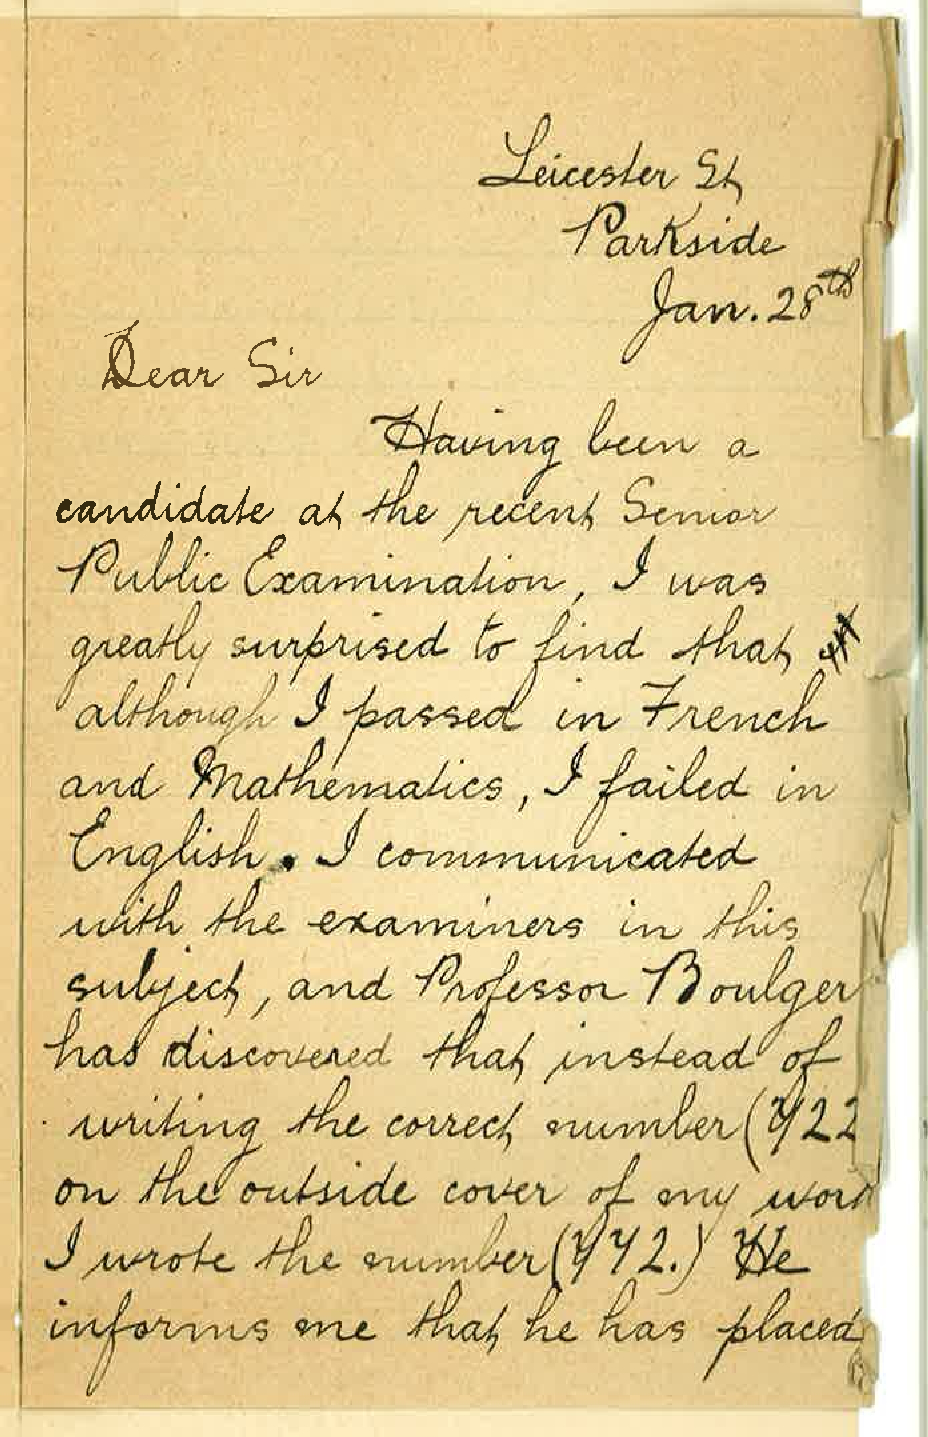 Leicester St
Parkside
Jan. 28th
Dear Sir
Having been a
candidate at the recent Senior
Public Examination, I was
greatly surprised to find that
although I passed in French
and Mathematics, I failed in
English. I communicated
with the examiners in this
subject, and Professor Boulger
has discovered that instead of
writing the correct number
on the outside cover of my work
I wrote the number He
informs me that he has placed